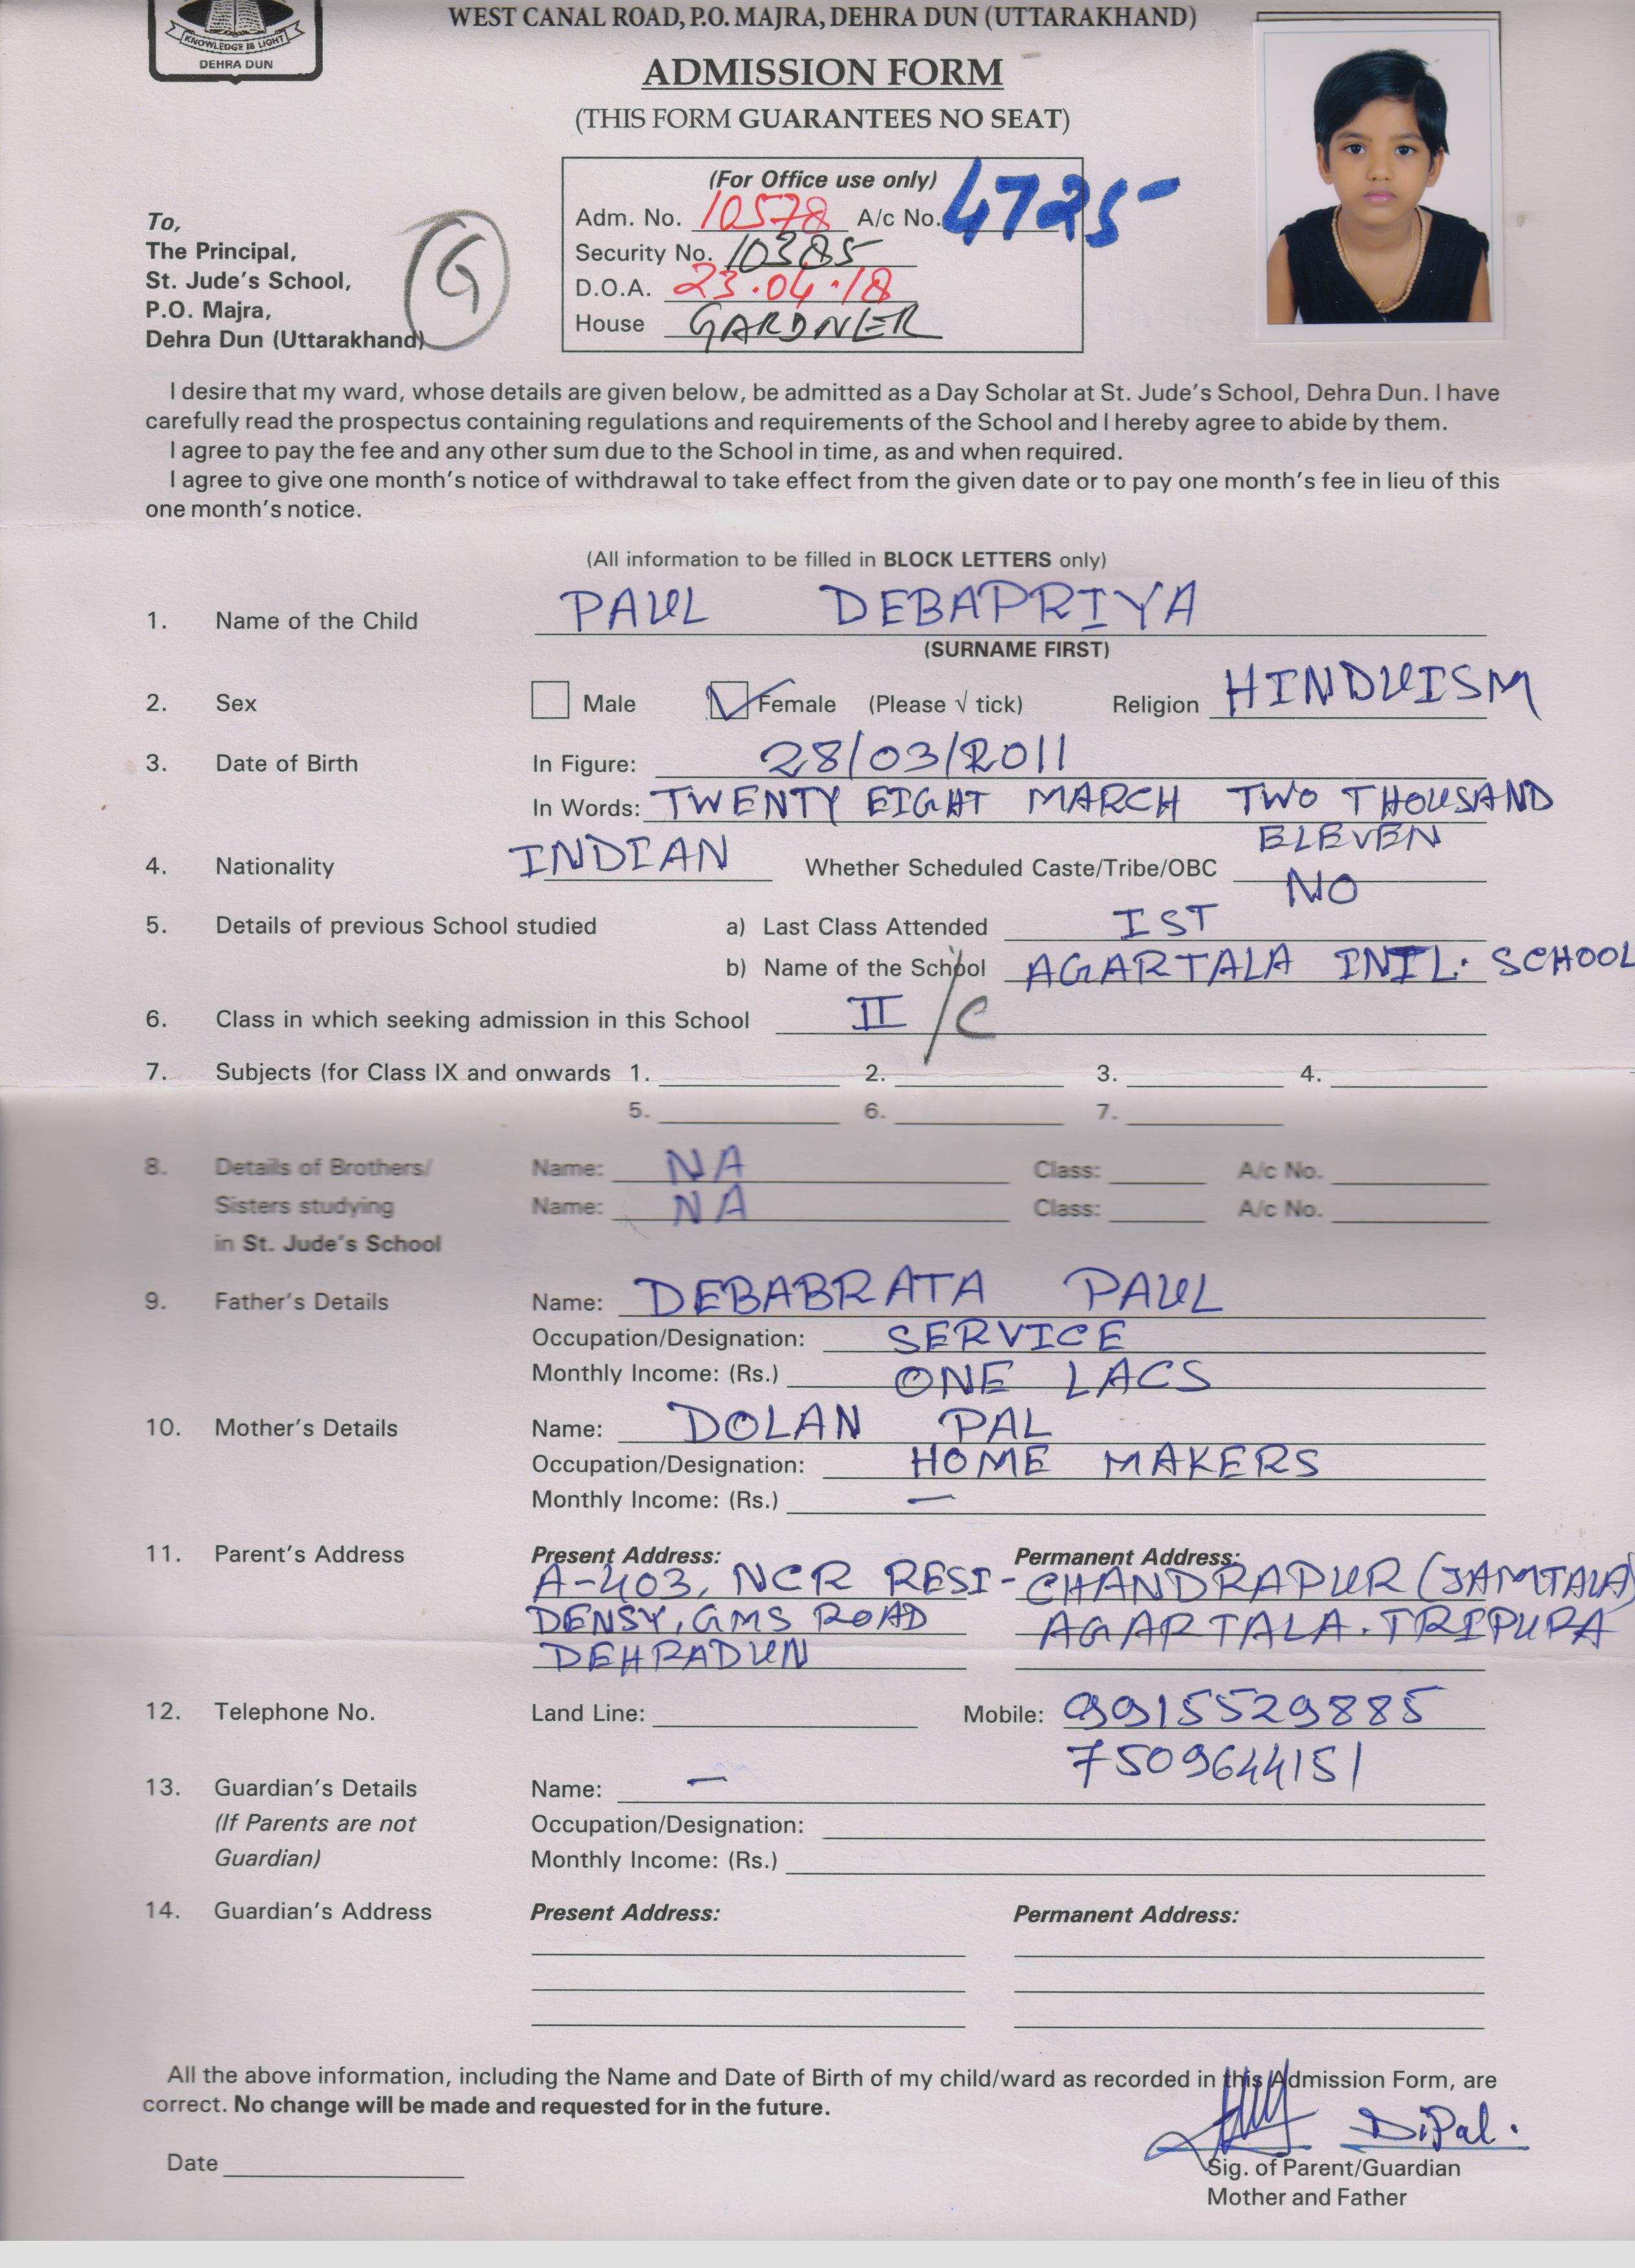 KNOWLEDGE IS LIGHT
DEHRA DUN
WEST CANAL ROAD, P.O. MAJRA, DEHRA DUN (UTTARAKHAND)
ADMISSION FORM
(THIS FORM GUARANTEES NO SEAT)
(For Office use only)
Adm. No. 10578 A/c No. 4725
Security No. 10385
D.O.A. 23.04.18
House GARDNER
To,
The Principal,
St. Jude's School,
P.O. Majra,
Dehra Dun (Uttarakhand)
G
I desire that my ward, whose details are given below, be admitted as a Day Scholar at St. Jude's School, Dehra Dun. I have
carefully read the prospectus containing regulations and requirements of the School and I hereby agree to abide by them.
I agree to pay the fee and any other sum due to the School in time, as and when required.
I agree to give one month's notice of withdrawal to take effect from the given date or to pay one month's fee in lieu of this
one month's notice.
(All information to be filled in BLOCK LETTERS only)
1. Name of the Child PAUL DEBAPRIYA
(SURNAME FIRST)
2. Sex Male Female (Please √ tick) Religion HINDUISM
3. Date of Birth In Figure: 28/03/2011
In Words: TWENTY EIGHT MARCH TWO THOUSAND
ELEVEN
4. Nationality INDIAN Whether Scheduled Caste/Tribe/OBC NO
5. Details of previous School studied a) Last Class Attended IST
b) Name of the School AGARTALA INTL. SCHOOL
6. Class in which seeking admission in this School II / C
7. Subjects (for Class IX and onwards 1. 2. 3. 4.
5. 6. 7.
8. Details of Brothers/ Name: NA Class: A/c No.
Sisters studying Name: NA Class: A/c No.
in St. Jude's School
9. Father's Details Name: DEBABRATA PAUL
Occupation/Designation: SERVICE
Monthly Income: (Rs.) ONE LACS
10. Mother's Details Name: DOLAN PAL
Occupation/Designation: HOME MAKERS
Monthly Income: (Rs.) —
11. Parent's Address Present Address: Permanent Address:
A-403, NCR RESI- CHANDRAPUR (JAMTALA)
DENSY, GMS ROAD AGARTALA. TRIPURA
DEHRADUN
12. Telephone No. Land Line: Mobile: 9915529885
7509644151
13. Guardian's Details Name: —
(If Parents are not Occupation/Designation:
Guardian) Monthly Income: (Rs.)
14. Guardian's Address Present Address: Permanent Address:
All the above information, including the Name and Date of Birth of my child/ward as recorded in this Admission Form, are
correct. No change will be made and requested for in the future.
DiPal.
Date Sig. of Parent/Guardian
Mother and Father